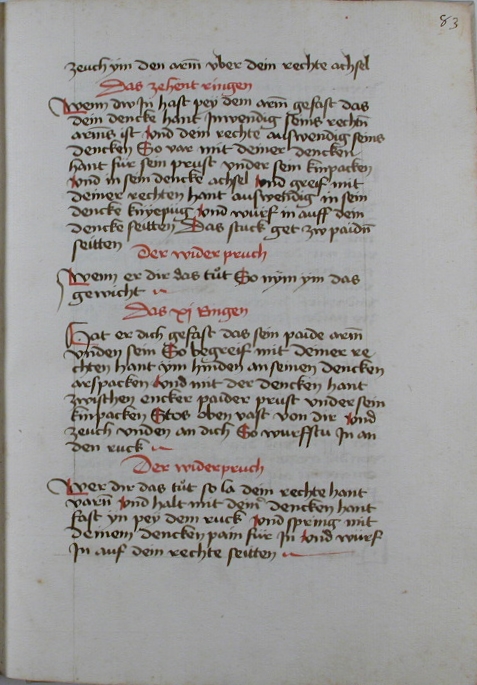 83
zeuch ym den arm̄ vber dein rechte achsel
Das zehent ringen
Wenn dw In hast pey dem arm̄ gefast das
dein dencke hant Inwendig seins rechtn̄
arm̄s ist Vnd dem rechte auswendig seins
dencken So var mit deiner dencken
hant für sein prust vnder sein kinpacken
Vnd in sein dencke achsel Vnd greif mit
deiner rechten hant auswendig in sein
dencke knyepug Vnd würf in auff dein
dencke seitten Das stuck get zw paidn̄
seitten Der wider pruch
Wenn er dir das tu̇t So nym ym das
gewicht
Das xi Ringen
Hat er dich gefast das sein paide arm̄
vnden sein So begreif mit deiner re
chten hant ym hinden an seinen dencken
arspacken Vnd mit der dencken hant
zwischen encker paider prust vnder sein
kinpacken Stos oben vast von dir Vnd
zeuch vnden an dich So wurfstu In an
den ruck
Der widerpruch
Wer dir das tu̇t so la dein rechte hant
varn̄ Vnd halt mit dein̄ dencken hant
fast yn pey dem ruck Vnd spring mit
deinem dencken pain für In Vnd würf
In auf dein rechte seitten